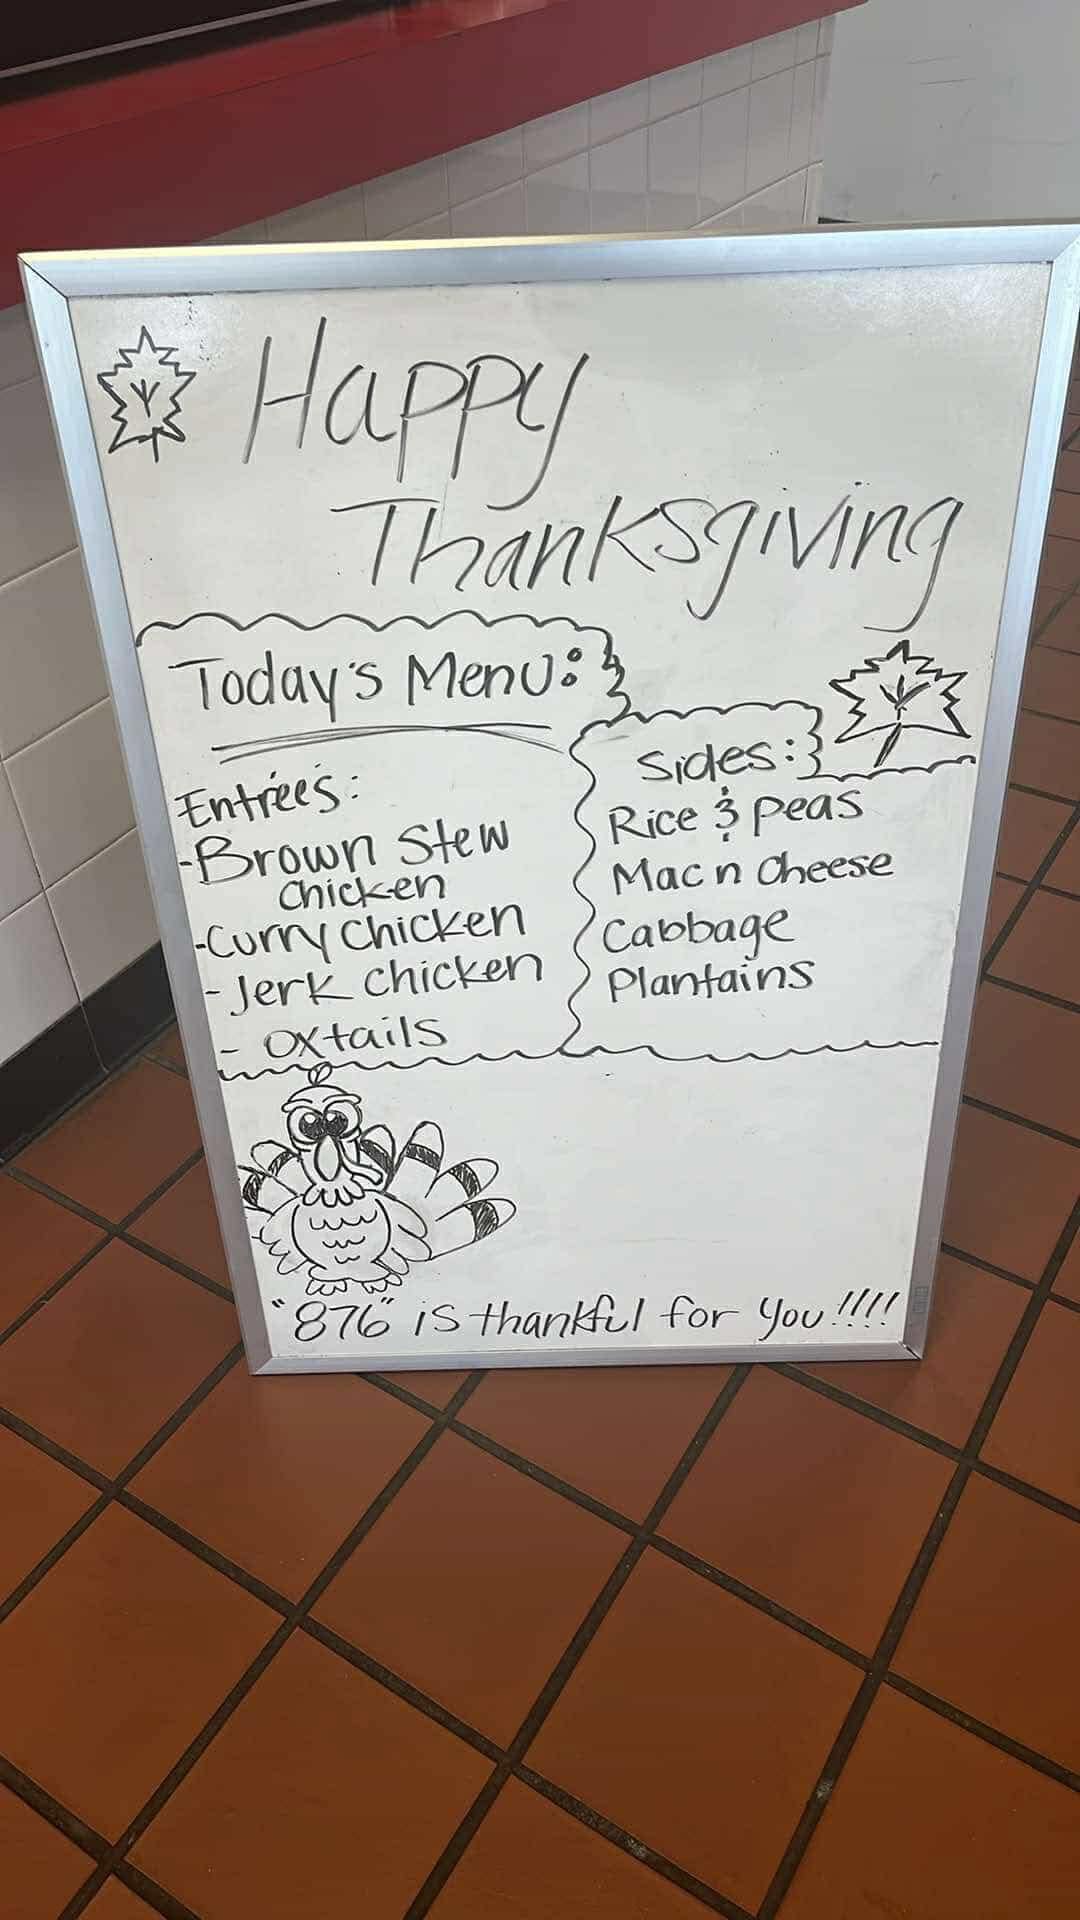 Happy
Thanksgiving
Today's Menu:
Entrée's:
-Brown Stew
Chicken
-Curry Chicken
-Jerk Chicken
- Oxtails
Sides:
Rice & Peas
Mac n Cheese
Cabbage
Plantains
"876" is thankful for you!!!!